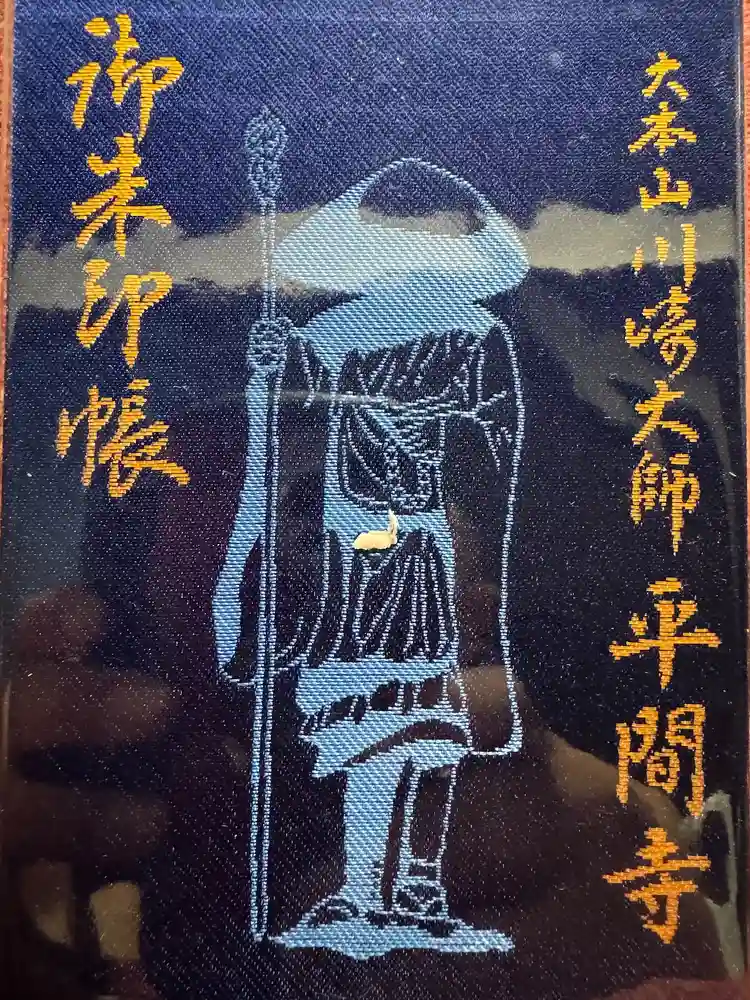 大本山川崎大師平間寺
御朱印帳